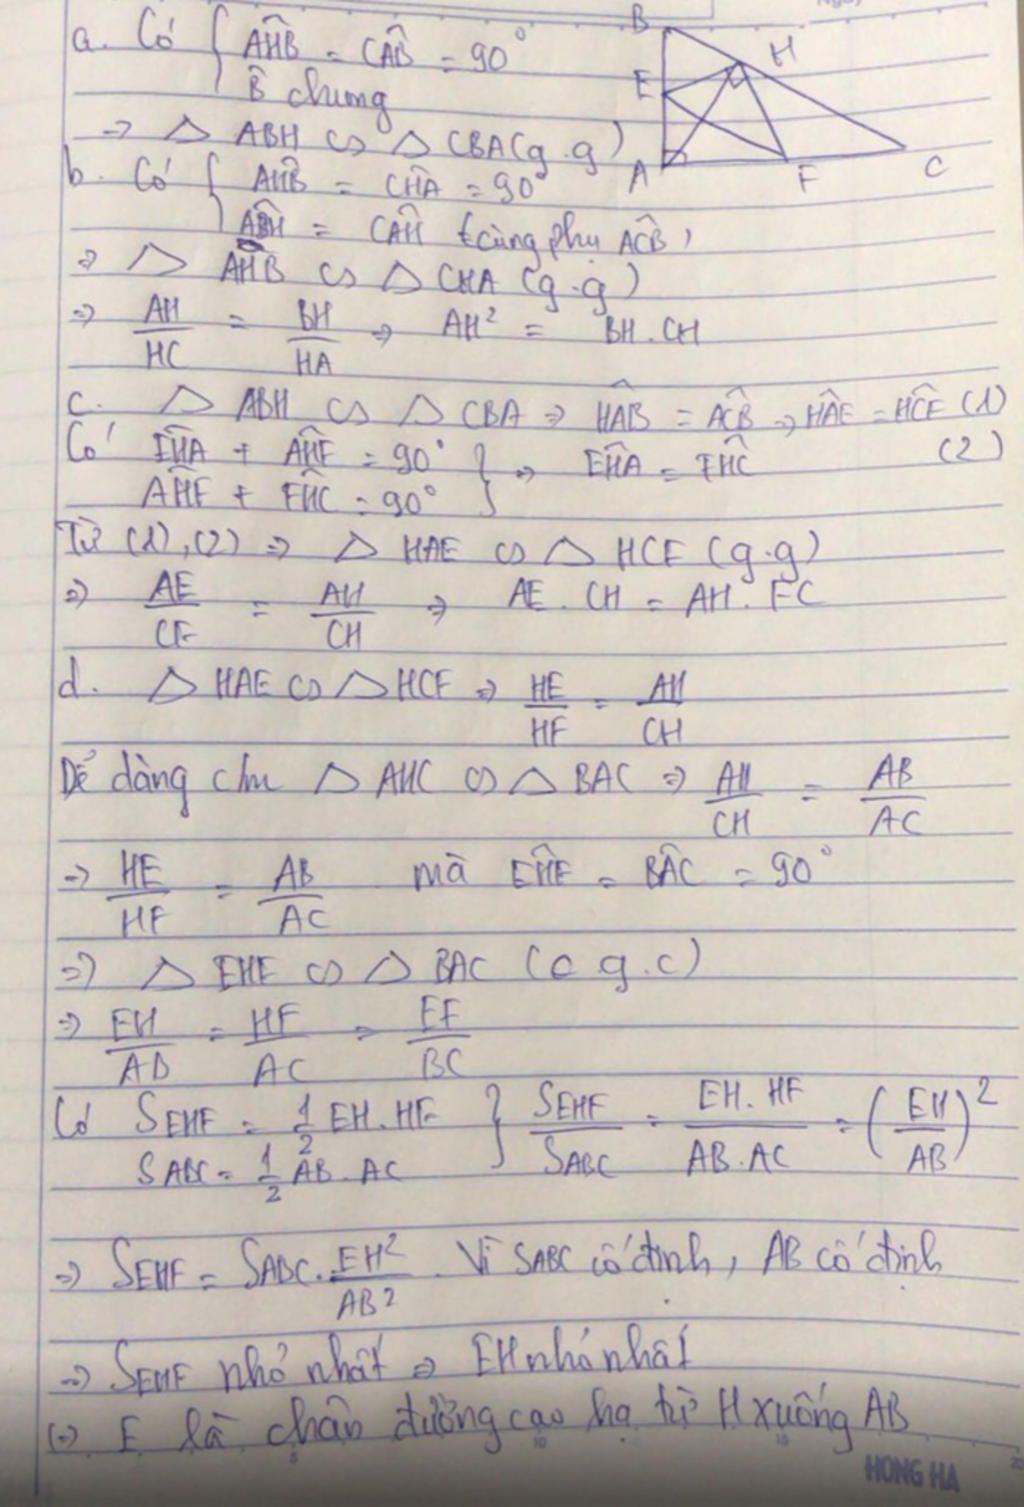 a. Có { AHB = CAB = 90°
B chung
→ △ ABH ∽ △ CBA (g.g)
b. Có { AHB = CHA = 90°
ABH = CAH (cùng phụ ACB)
⇒ △ AHB ∽ △ CHA (g.g)
⇒ AH/HC = BH/HA ⇒ AH² = BH.CH
c. △ ABH ∽ △ CBA ⇒ HAB = ACB ⇒ HAE = HCF (1)
Có EHA + AHF = 90° } ⇒ EHA = FHC (2)
AHF + FHC = 90°
Từ (1), (2) ⇒ △ HAE ∽ △ HCF (g.g)
⇒ AE/CF = AH/CH ⇒ AE . CH = AH . FC
d. △ HAE ∽ △ HCF ⇒ HE/HF = AH/CH
Dễ dàng cm △ AHC ∽ △ BAC ⇒ AH/CH = AB/AC
→ HE/HF = AB/AC mà EHF = BAC = 90°
⇒ △ EHF ∽ △ BAC (c g.c)
⇒ EH/AB = HF/AC = EF/BC
Có SEHF = 1/2 EH.HF } SEHF/SABC = EH.HF/AB.AC = (EH/AB)²
SABC = 1/2 AB.AC
⇒ SEHF = SABC . EH²/AB² . Vì SABC cố định, AB cố định
→ SEHF nhỏ nhất ⇒ EH nhỏ nhất
(=) E là chân đường cao hạ từ H xuống AB
B
H
E
A
F
C
5
10
15
20
HONG HA